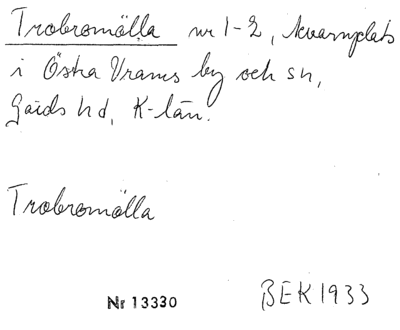 Trobromölla nr 1-2, kvarnplats
i Östra Vrams by och sn,
Gärds hd, K-län.
Trobromölla
Nr 13330 BEK 1933